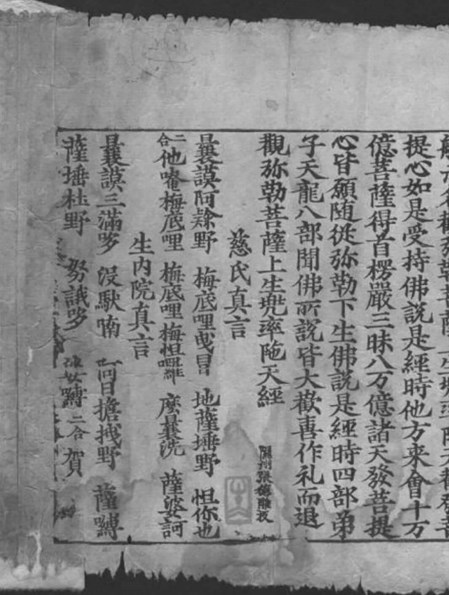 提心如是受持佛說是經時他方來會十万
億菩薩得首楞嚴三昧八万億諸天發菩提
心皆願随從弥勒下生佛說是經時四部弟
子天龍八部聞佛所說皆大歡喜作礼而退
觀弥勒菩薩上生兜率陁天經
慈氏真言
曩謨阿隸野 梅底哩曳冒 地薩埵野 怛你也
二合他唵梅底哩 梅底哩梅怛囉 麼曩洗 薩婆訶
生内院真言
曩謨三滿哆 沒馱喃 擔拽野 薩嚩
薩埵 野 努誐哆 嚩二合賀